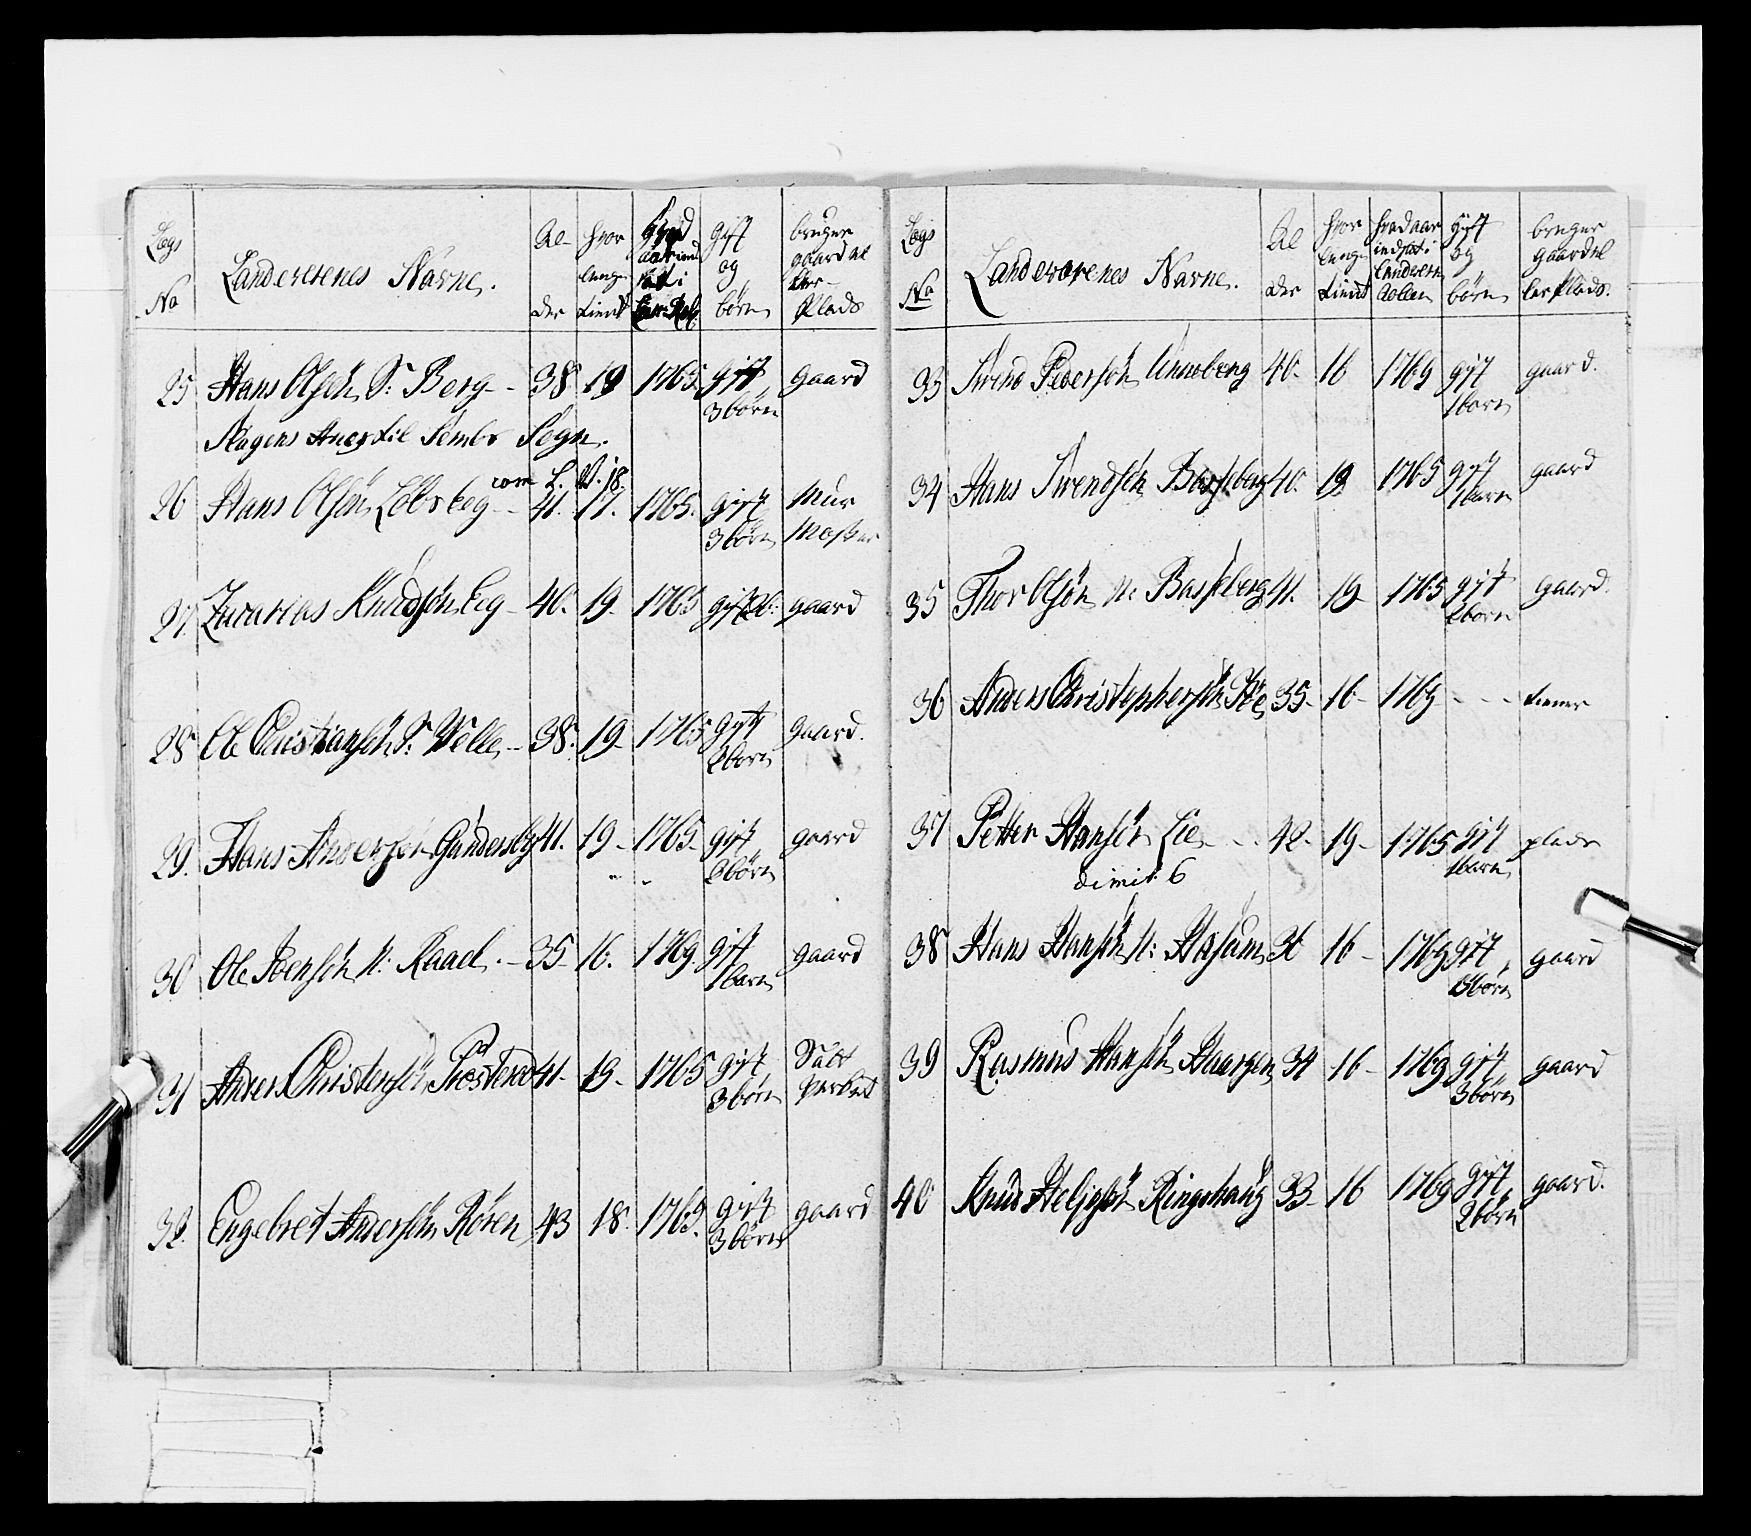 Lægs No
Landeverenes Navne.
Al- der
hvor længe tient
gift og børn
bruger gaard el ler Plads
25 Hans Olsøn S: Berg - 38 19 1765 gift 3 børn gaard
Slagens Anex til Sembs Sogn.
26 Hans Olsøn - 41. 17. 1765. gift 3 børn Mur Mester
27. Zacarias Knudsøn Eeg - 40. 19. 1765 gift 2b: gaard
28 Ole Christiansøn S: Velle - 38. 19 - 1765 gift 2 børn gaard.
29. Hans Andersøn 41. 19 - 1765. gift 3 børn gaard
30 Ole N: Raael - 35 16. 1769 gift 1 barn gaard
31 Anders Christensøn 41 - 19 - 1765 gift 3 børn Salt
32. Engebret Andersøn Røren 43 18. 1765. gift 3 børn gaard
Lægs No
Landeværenes Navne.
Al der
hvor længe tient
hvad aar indsat i Landvern Rollen
gift og børn
bruger gaard el ler Plads.
33 Svend Pedersøn Unneberg 40. 16 1769 gift 1 barn gaard.
34 Hans Svendsøn Basseberg 40. 19 1765 gift 1 barn gaard
35 Thor Olsøn N: Basseberg 41. 19 - 1765 gift 2 børn gaard.
36 Anders Christophersøn 35 - 16 - 1769 - - - tiener
37 Petter Hansøn Lie - - 42 - 19 - 1765 gift 1 barn plads
dimit: 6
38 Hans Hansøn N: 36 16 - 1769 gift 3 børn gaard
39 Rasmus Hansøn 34 16 - 1769 gift 3 børn gaard
40 Knud Ringshaug 33 - 16 1769 gift 2 børn gaard.